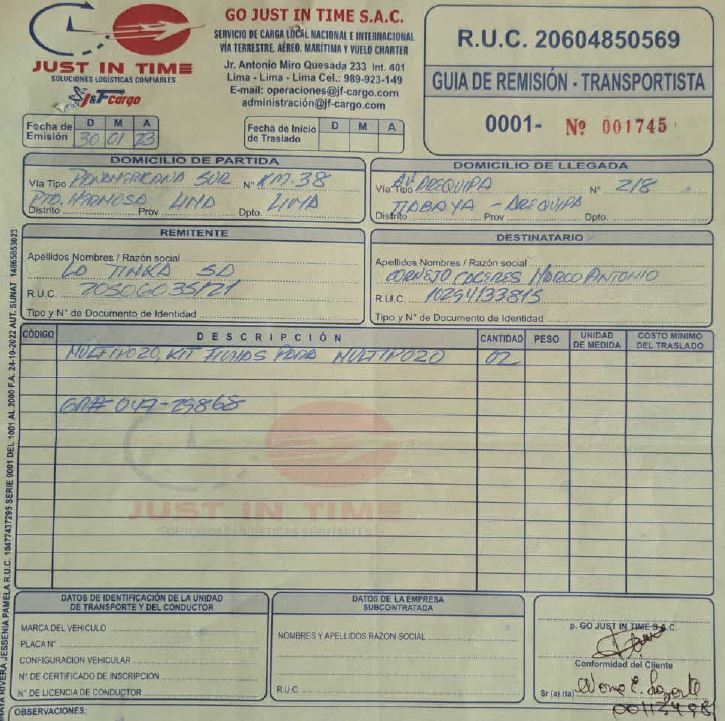 GO JUST IN TIME S.A.C.
SERVICIO DE CARGA LOCAL NACIONAL E INTERNACIONAL
VÍA TERRESTRE, AÉREO, MARÍTIMA Y VUELO CHARTER
Jr. Antonio Miro Quesada 233 Int. 401
Lima - Lima - Lima Cel.: 989-923-149
E-mail: operaciones@jf-cargo.com
administración@jf-cargo.com
JUST IN TIME
SOLUCIONES LOGÍSTICAS CONFIABLES
J&F Cargo
R.U.C. 20604850569
GUIA DE REMISIÓN - TRANSPORTISTA
0001- Nº 001745
Fecha de Emisión D M A
30 01 23
Fecha de Inicio de Traslado D M A
DOMICILIO DE PARTIDA
Vía Tipo PANAMERICANA SUR N° KM-38
PTO. HERMOSA LIMA LIMA
Distrito Prov Dpto.
DOMICILIO DE LLEGADA
Vía Tipo AV AREQUIPA N° 218
TIABAYA - AREQUIPA
Distrito Prov Dpto.
REMITENTE
Apellidos Nombres / Razón social
LA TINKA SA
R.U.C. 20506035121
Tipo y N° de Documento de Identidad
DESTINATARIO
Apellidos Nombres / Razón social
CORNEJO CACERES MARCO ANTONIO
R.U.C. 10294133815
Tipo y N° de Documento de Identidad
CÓDIGO DESCRIPCIÓN CANTIDAD PESO UNIDAD DE MEDIDA COSTO MINIMO DEL TRASLADO
MULTIPOZO, KIT FICHAS PARA MULTIPOZO 02
GR# 047-29868
JUST IN TIME
SOLUCIONES LOGISTICAS CONFIABLES
DATOS DE IDENTIFICACIÓN DE LA UNIDAD
DE TRANSPORTE Y DEL CONDUCTOR
MARCA DEL VEHICULO
PLACA N°
CONFIGURACION VEHICULAR
N° DE CERTIFICADO DE INSCRIPCION
N° DE LICENCIA DE CONDUCTOR
DATOS DE LA EMPRESA
SUBCONTRATADA
NOMBRES Y APELLIDOS RAZON SOCIAL
R.U.C.
p. GO JUST IN TIME S.A.C.
Conformidad del Cliente
Sr (a) (ta)
OBSERVACIONES:
RIVERA JESSENIA PAMELA R.U.C. 10477437295 SERIE 0001 DEL 1001 AL 2000 F.A. 24-10-2022 AUT. SUNAT 14865853023